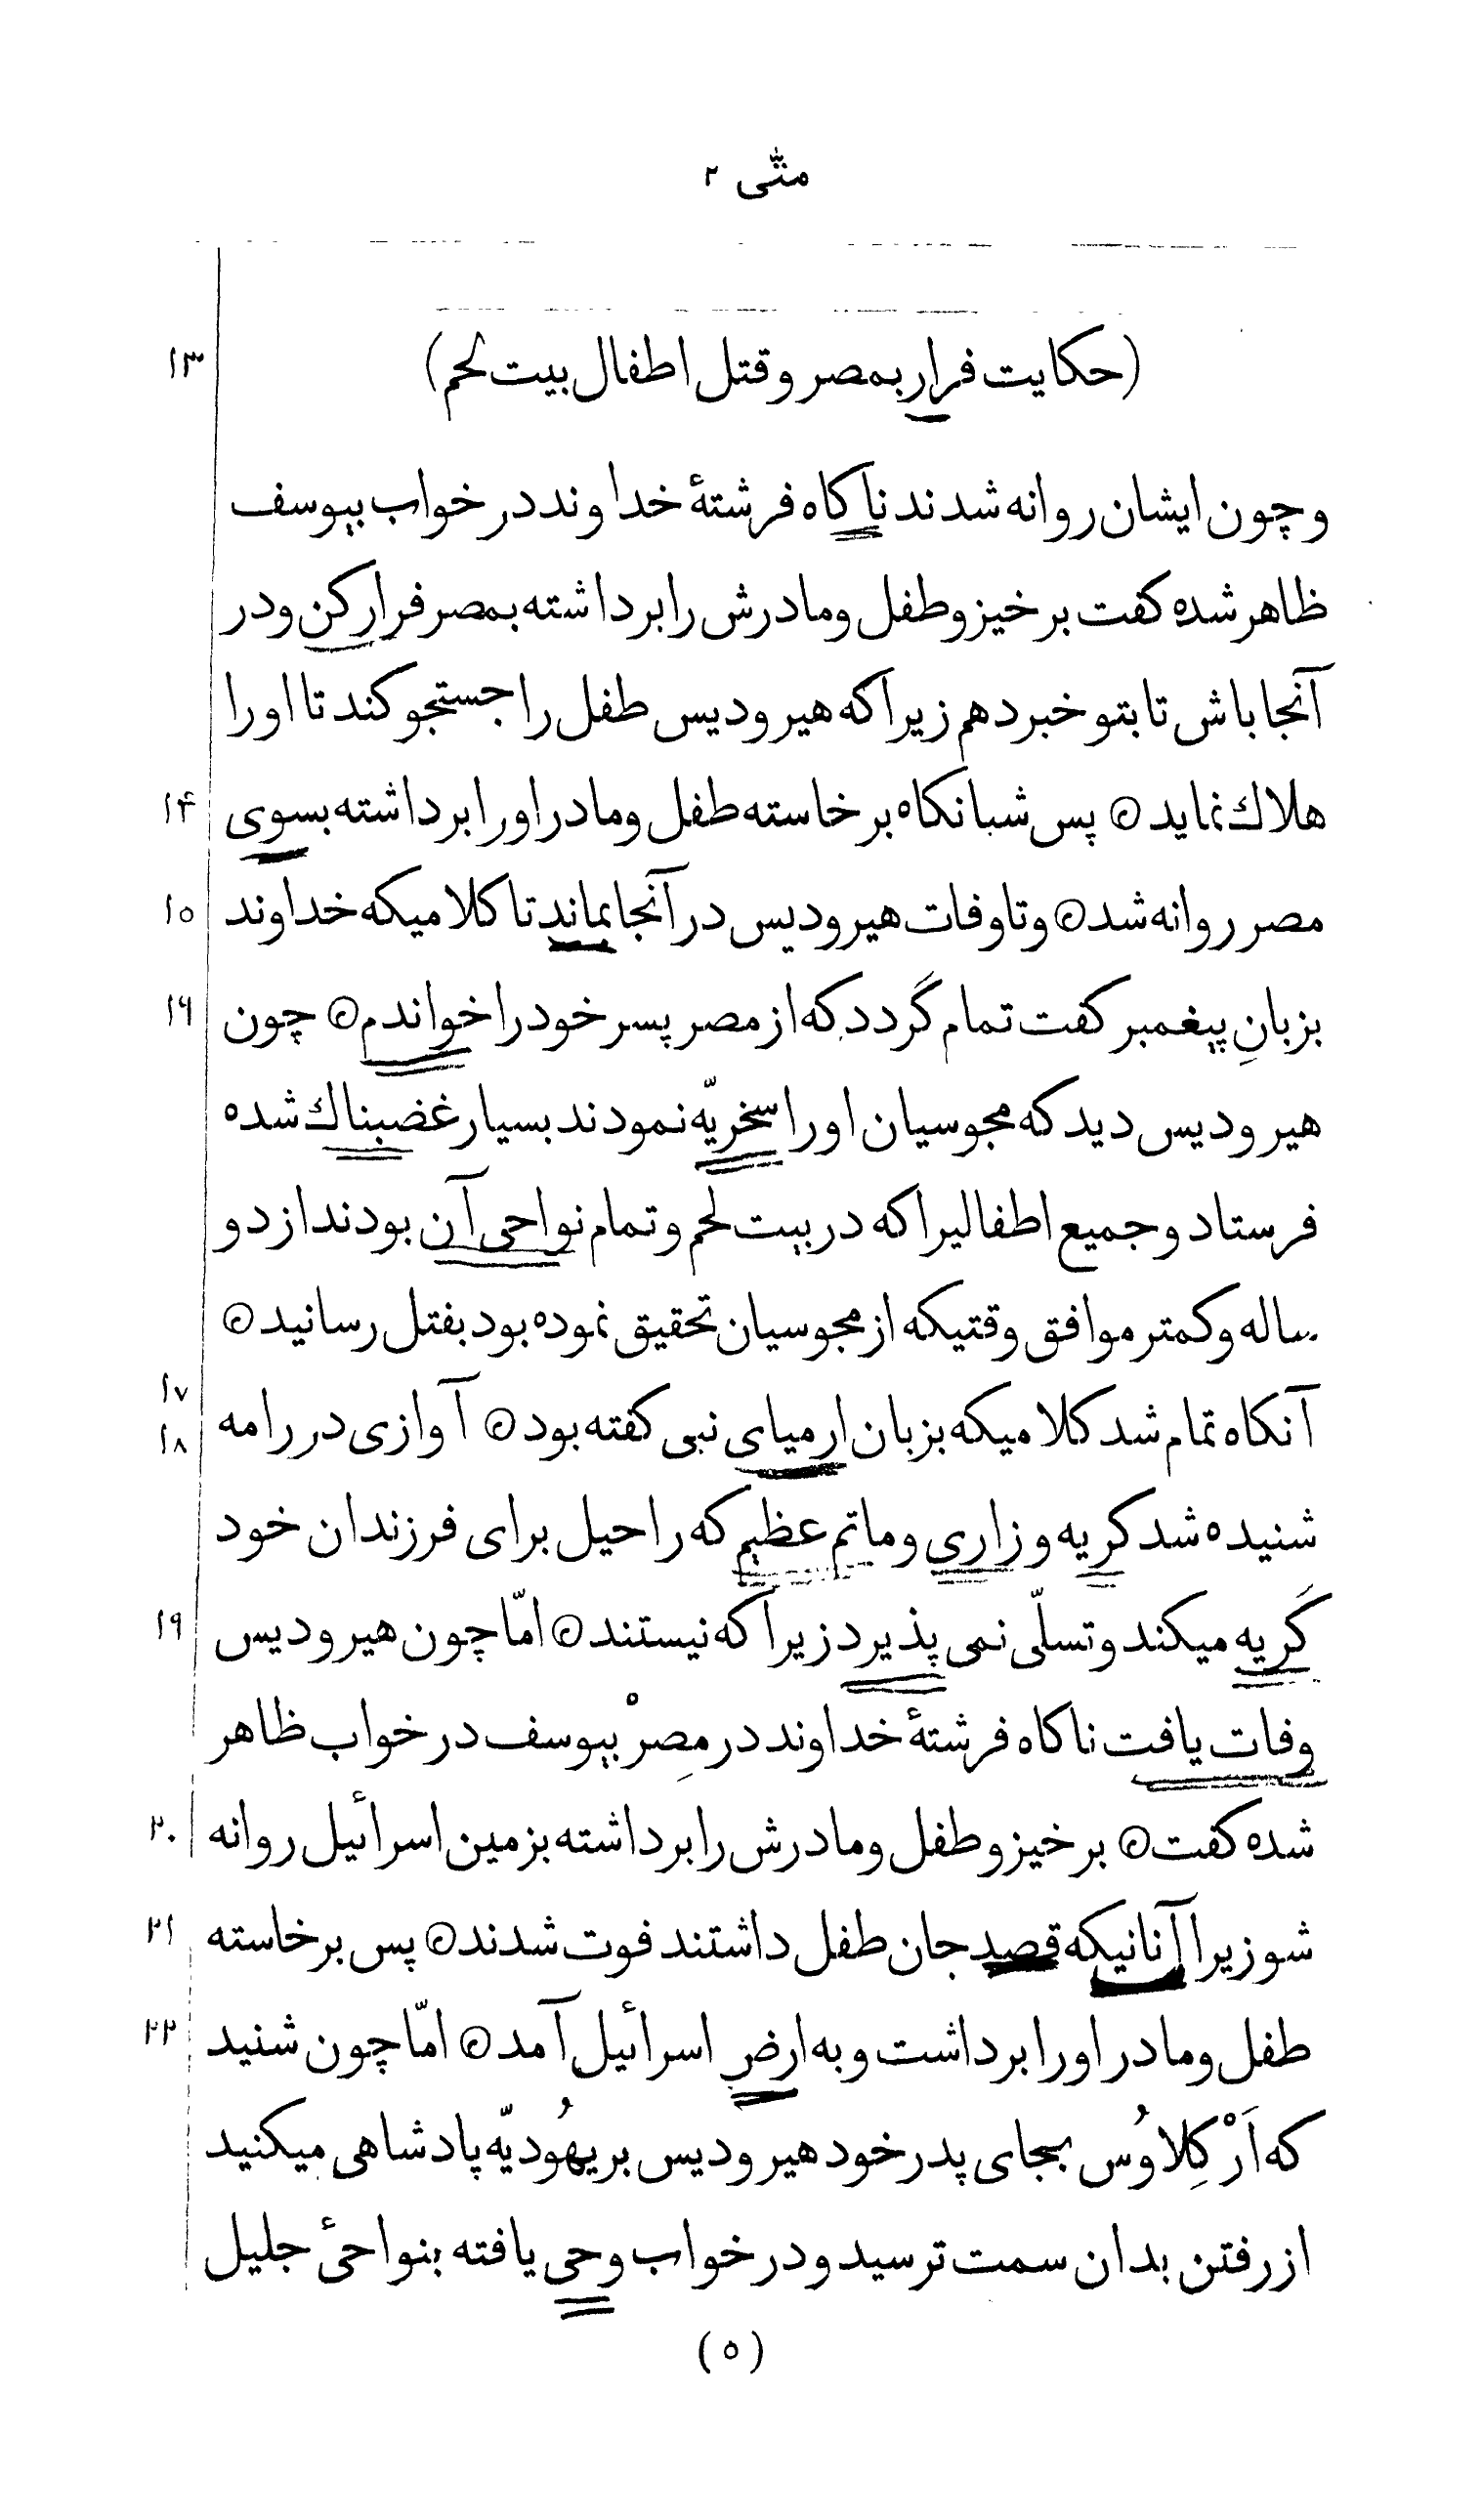 متّی ۲
۱۳
(حکایت فرار بمصر و قتل اطفال بیت لحم)
و چون ایشان روانه شدند ناکاه فرشتهٔ خداوند در خواب بیوسف
ظاهر شده کفت برخیز و طفل و مادرش را برداشته بمصر فرار کن و در
آنجا باش تا بتو خبر دهم زیرا که هیرودیس طفل را جستجو کند تا او را
۱۴ هلاك نماید ۝ پس شبانکاه برخاسته طفل و مادر او را برداشته بسوی
۱۵ مصر روانه شد ۝ و تا وفات هیرودیس در آنجا بماند تا کلامیکه خداوند
۱۶ بزبانِ پیغمبر کفت تمام گردد که از مصر پسر خود را خواندم ۝ چون
هیرودیس دید که مجوسیان او را سخریّه نمودند بسیار غضبناك شده
فرستاد و جمیع اطفالیرا که در بیت لحم و تمام نواحی آن بودند از دو
ساله و کمتر موافق وقتیکه از مجوسیان تحقیق نموده بود بقتل رسانید ۝
۱۷
۱۸ آنکاه تمام شد کلامیکه بزبان ارمیای نبی کفته بود ۝ آوازی در رامه
شنیده شد کریه و زاری و ماتم عظیم که راحیل برای فرزندان خود
۱۹ گریه میکند و تسلّی نمی پذیرد زیرا که نیستند ۝ امّا چون هیرودیس
وفات یافت ناکاه فرشتهٔ خداوند در مِصرْ بیوسف در خواب ظاهر
۲۰ شده کفت ۝ برخیز و طفل و مادرش را برداشته بزمین اسرائیل روانه
۲۱ شو زیرا آنانیکه قصد جان طفل داشتند فوت شدند ۝ پس برخاسته
۲۲ طفل و مادر او را برداشت و به ارض اسرائیل آمد ۝ امّا چون شنید
که اَرْکِلاوُس بجای پدر خود هیرودیس بر یهُودیّه پادشاهی میکنید
از رفتن بدان سمت ترسید و در خواب وحی یافته بنواحیٔ جلیل
(۵)